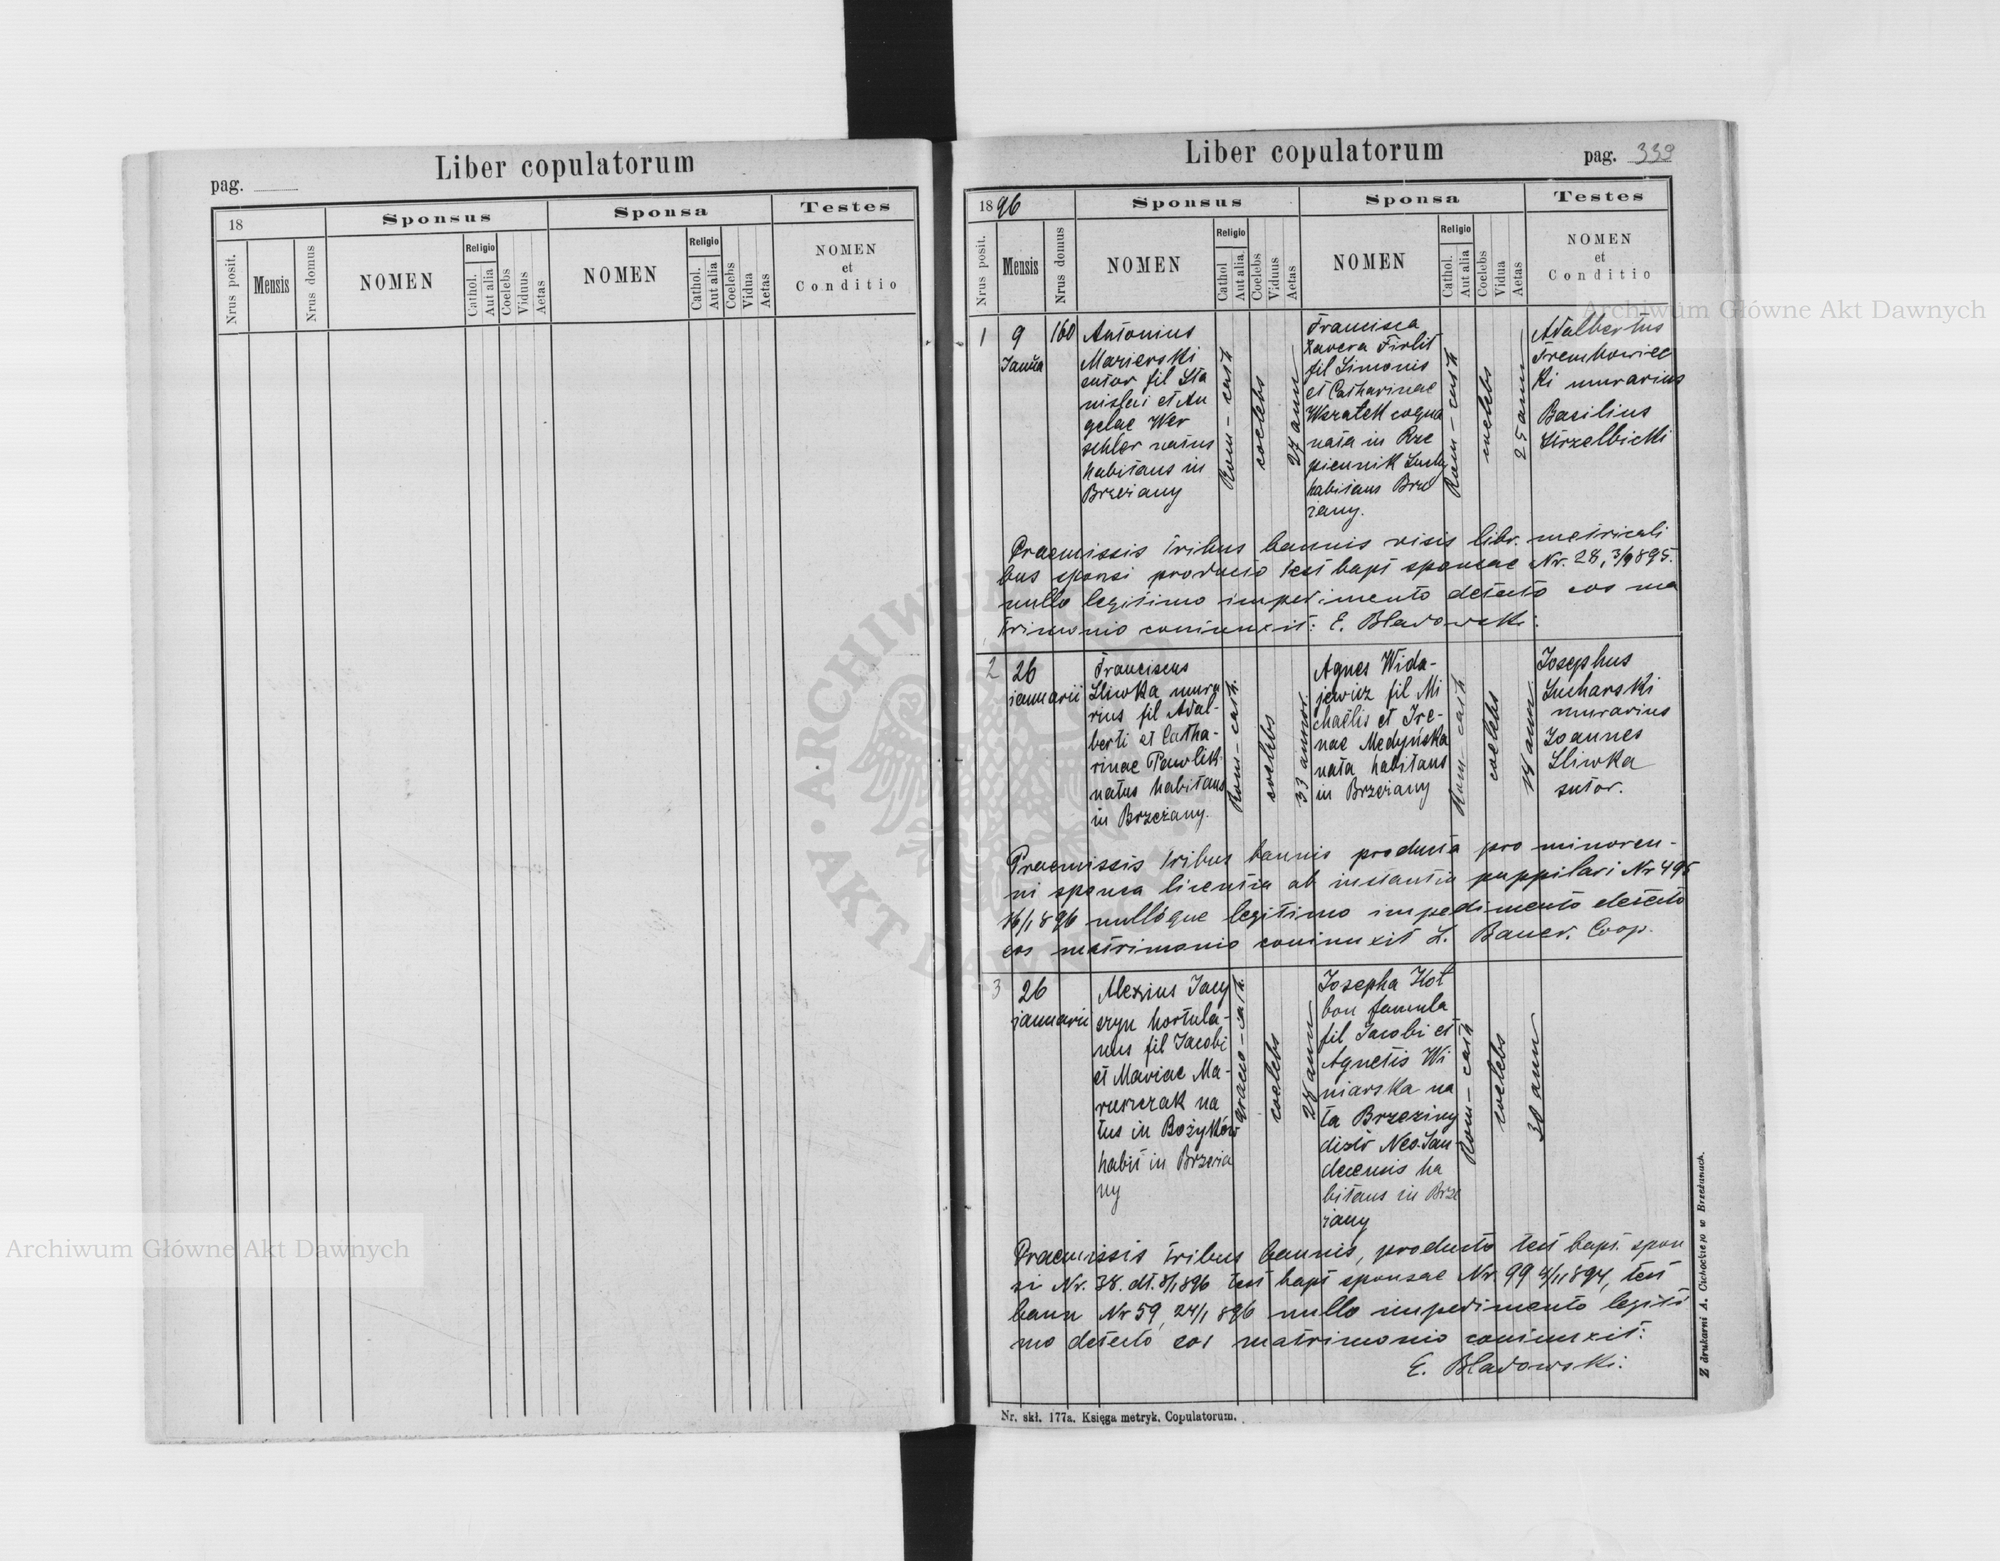 pag.
Liber copulatorum
18
Sponsus
Sponsa
Testes
Nrus posit.
Mensis
Nrus domus
NOMEN
Religio
Cathol.
Aut alia
Coelebs
Viduus
Aetas
NOMEN
Religio
Cathol.
Aut alia
Coelebs
Vidua
Aetas
NOMEN
et
Conditio
Liber copulatorum
pag. 339
1896
Sponsus
Sponsa
Testes
Nrus posit.
Mensis
Nrus domus
NOMEN
Religio
Cathol
Aut alia.
Coelebs
Viduus
Aetas
NOMEN
Religio
Cathol.
Aut alia
Coelebs
Vidua
Aetas
NOMEN
et
Conditio
1
9
160
Antonius
sutor fil Sta
nislai et An
gelae Wer
schler natus
habitans in
Brzeżany
Rom-cath
coelebs
27 ann
Francisca
Xavera Firlit
fil Simonis
et Catharinae
nata in Rze
piennik Suchy
habitans Brze
żany.
Rom-cath
coelebs
25 ann
Adalbertus
Trembowiec
ki murarius
Basilius
Strzelbicki
Praemissis tribus bannis visis libr. metricali
bus sponsi producto test bapt sponsae Nr. 28, 3/9 895.
nullo legitimo impedimento detecto eos ma
trimonio coniunxit: E. Bladowski:
2
26
januarii
Franciscus
Sliwka mura
rius fil Adal-
berti et Catha-
rinae Pawlik
natus habitans
in Brzeżany.
Rom-cath.
coelebs
33 annor.
Agnes Wida-
jewicz fil Mi
chaëlis et Ire-
nae Medyńska
nata habitans
in Brzeżany
Rom-cath
coelebs
Josephus
Sucharski
murarius
Joannes
Sliwka
sutor.
Praemissis tribus bannis producta pro minoren-
ni sponsa licentia ab instantia puppilari Nr 495
16/1 896 nulloque legitimo impedimento detecto
eos matrimonio coniunxit L. Bauer. Coop.
3
26
januarii
Alexius Jacy
szyn hortula-
nus fil Jacobi
et Mariae Ma-
ruszczak na
tus in Bożyków
habit in Brzeża
ny
graeco-cath.
coelebs
28 ann
Josepha Koł
bon famula
fil Jacobi et
Agnetis Wi
niarska na
ta Brzeziny
distr Neo-San
decensis ha
bitans in Brze
żany
Rom-cath
coelebs
30 ann
Praemissis tribus bannis, producto test bapt. spon
si Nr. 38. dt. 8/1 896 test bapt sponsae Nr. 99 4/11 894, test
bann Nr 59, 24/1 896 nullo impedimento legiti
mo detecto eos matrimonio coniunxit:
E. Bladowski:
Nr. skł. 177a. Księga metryk. Copulatorum.
Z drukarni A. Cichockiego w Brzeżanach.
Archiwum Główne Akt Dawnych
Archiwum Główne Akt Dawnych